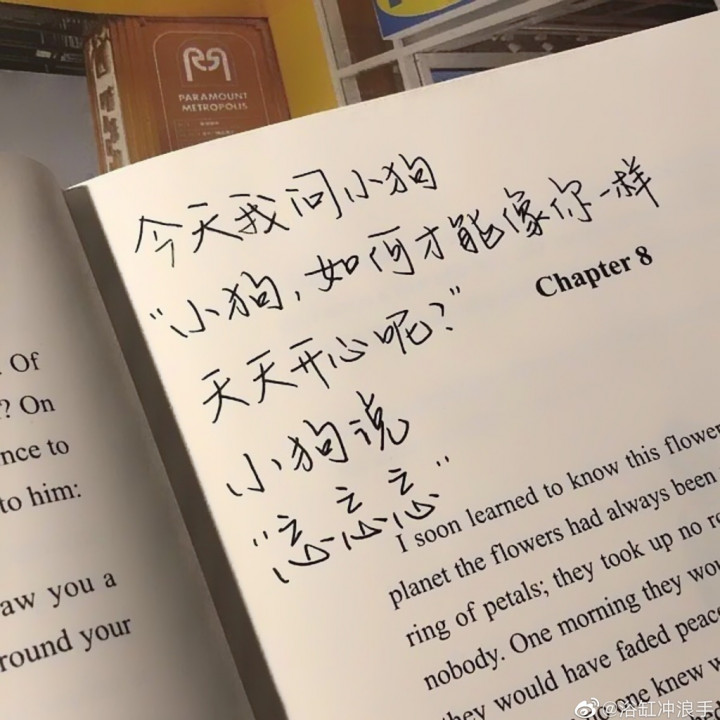 PARAMOUNT
METROPOLIS
今天我问小狗
“小狗，如何才能像你一样
天天开心呢？”
小狗说
“忘忘忘”
Chapter 8
Of
? On
nce to
to him:
aw you a
round your
I soon learned to know this flower
planet the flowers had always been
ring of petals; they took up no
nobody. One morning they
they would have faded
one knew
@浴缸冲浪手